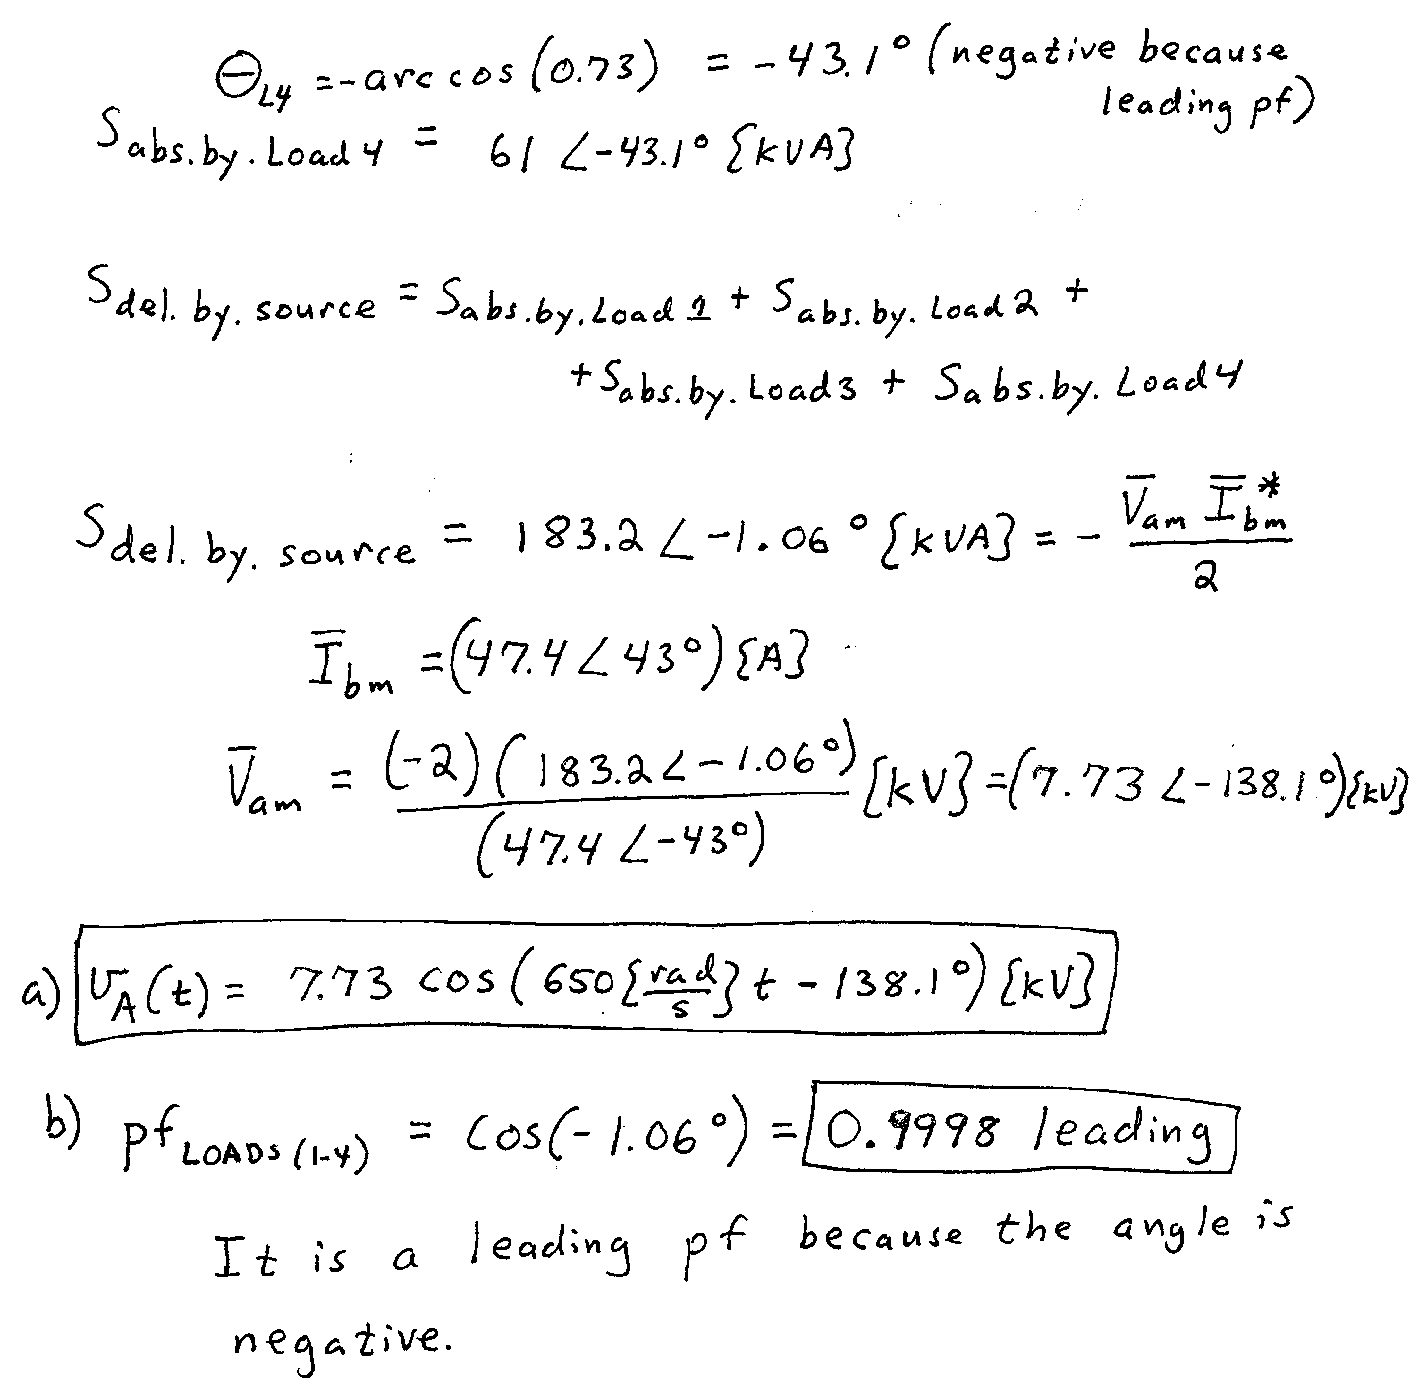 Θ_L4 =-arccos(0.73) = -43.1° (negative because
leading pf)
S_abs.by.Load 4 = 61 ∠-43.1° {kVA}
S_del. by. source = S_abs.by.Load 1 + S_abs.by.Load 2 +
+ S_abs.by.Load 3 + S_abs.by.Load 4
S_del. by. source = 183.2 ∠-1.06° {kVA} = - V̄_am Ī_bm* / 2
Ī_bm = (47.4 ∠43°) {A}
V̄_am = (-2)(183.2 ∠-1.06°) / (47.4 ∠-43°) {kV} = (7.73 ∠-138.1°) {kV}
a) v_A(t) = 7.73 cos(650 {rad/s} t - 138.1°) {kV}
b) pf_LOADS (1-4) = cos(-1.06°) = 0.9998 leading
It is a leading pf because the angle is
negative.